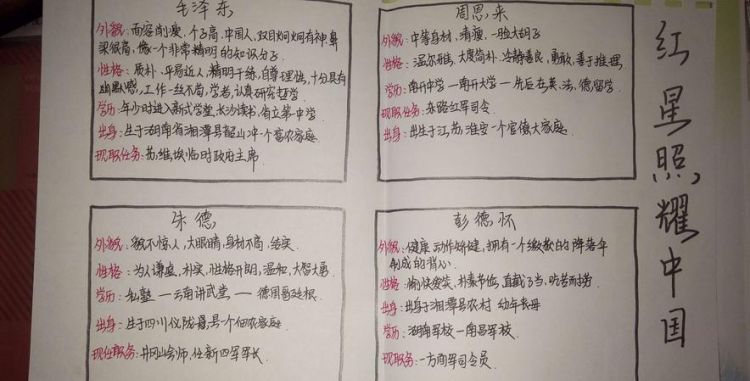 毛泽东
外貌：面容削瘦，个子高，中国人，双目炯炯有神，鼻
梁很高，像一个非常精明的知识分子
性格：质朴，平易近人，精明干练，自尊理性，十分具有
幽默感，工作一丝不苟，学者，认真研究哲学
学历：年少时进入新式学堂，长沙读书，省立第一中学
出身：生于湖南省湘潭县韶山冲一个富农家庭
现职任务：苏维埃临时政府主席
周恩来
外貌：中等身材，清瘦，一脸大胡子
性格：温尔雅，大度简朴，冷静善良，勇敢，善于推理
学历：南开中学—南开大学—先后在英、法、德留学
现职任务：东路红军司令
出身：出生于江苏淮安一个官僚大家庭
朱德
外貌：貌不惊人，大眼睛，身材不高，结实
性格：为人谦虚，朴实，性格开朗，温和，大智大勇
学历：私塾—云南讲武堂—德国哥廷根
出身：生于四川仪陇县一个佃农家庭
现任职务：井冈山会师，任新四军军长
彭德怀
外貌：健康，动作矫健，拥有一个缴获的降落伞
制成的背心
性格：愉快爱笑，朴素节俭，直截了当，吃苦耐劳
出身：出身于湘潭县农村 幼年丧母
学历：湖南军校—南昌军校
现职务：一方面军司令员
红星照耀中国